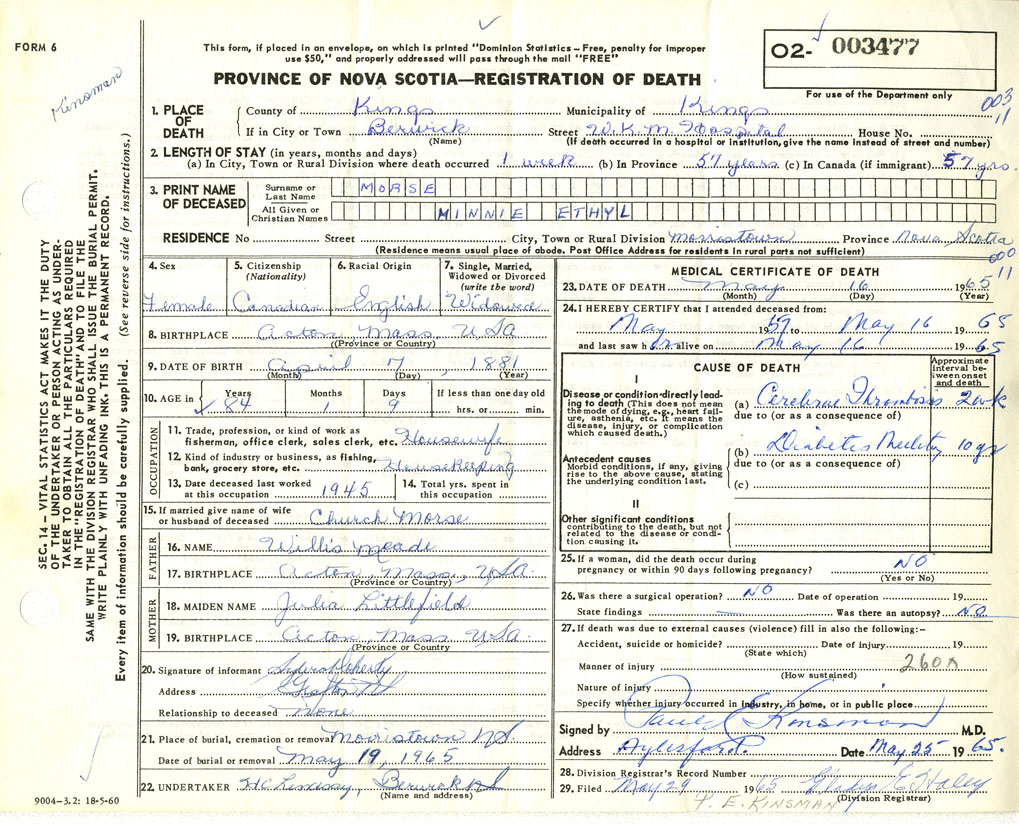 FORM 6
This form, if placed in an envelope, on which is printed "Dominion Statistics – Free, penalty for improper
use $50," and properly addressed will pass through the mail "FREE"
PROVINCE OF NOVA SCOTIA—REGISTRATION OF DEATH
O2- 003477
For use of the Department only
Kinsman
003
11
SEC. 14 – VITAL STATISTICS ACT MAKES IT THE DUTY
OF THE UNDERTAKER OR PERSON ACTING AS UNDER-
TAKER TO OBTAIN ALL THE PARTICULARS REQUIRED
IN THE "REGISTRATION OF DEATH" AND TO FILE THE
SAME WITH THE DIVISION REGISTRAR WHO SHALL ISSUE THE BURIAL PERMIT.
WRITE PLAINLY WITH UNFADING INK. THIS IS A PERMANENT RECORD.
Every item of information should be carefully supplied. (See reverse side for instructions.)
1. PLACE OF DEATH
County of Kings Municipality of Kings
If in City or Town Berwick Street W. K. M. Hospital House No.
(Name) (If death occurred in a hospital or institution, give the name instead of street and number)
2. LENGTH OF STAY (in years, months and days)
(a) In City, Town or Rural Division where death occurred 1 week (b) In Province 57 years (c) In Canada (if immigrant) 57 yrs.
3. PRINT NAME OF DECEASED
Surname or Last Name MORSE
All Given or Christian Names MINNIE ETHYL
RESIDENCE No Street City, Town or Rural Division Morristown Province Nova Scotia
(Residence means usual place of abode. Post Office Address for residents in rural parts not sufficient)
000
11
4. Sex 5. Citizenship (Nationality) 6. Racial Origin 7. Single, Married, Widowed or Divorced (write the word)
Female Canadian English Widowed
8. BIRTHPLACE Acton Mass USA
(Province or Country)
9. DATE OF BIRTH April 7, 1881
(Month) (Day) (Year)
10. AGE in Years Months Days If less than one day old
84 1 9 hrs. or min.
OCCUPATION
11. Trade, profession, or kind of work as
fisherman, office clerk, sales clerk, etc. Housewife
12. Kind of industry or business, as fishing,
bank, grocery store, etc. Housekeeping
13. Date deceased last worked at this occupation 1945
14. Total yrs. spent in this occupation
15. If married give name of wife
or husband of deceased Church Morse
FATHER
16. NAME Willis Meade
17. BIRTHPLACE Acton, Mass, USA.
(Province or Country)
MOTHER
18. MAIDEN NAME Julia Littlefield
19. BIRTHPLACE Acton Mass USA.
(Province or Country)
20. Signature of informant
Address Grafton NS
Relationship to deceased None
21. Place of burial, cremation or removal Morristown NS.
Date of burial or removal May 19, 1965
22. UNDERTAKER H C Lindsay, Berwick NS
(Name and address)
9004-3.2: 18-5-60
MEDICAL CERTIFICATE OF DEATH
23. DATE OF DEATH May 16 1965
(Month) (Day) (Year)
24. I HEREBY CERTIFY that I attended deceased from:
May 1959 to May 16 1965
and last saw her alive on May 16 1965
CAUSE OF DEATH
Approximate interval between onset and death
I
Disease or condition directly leading to death (This does not mean the mode of dying, e.g., heart failure, asthenia, etc. It means the disease, injury, or complication which caused death.)
(a) Cerebral Thrombosis 2 wk
due to (or as a consequence of)
Antecedent causes
Morbid conditions, if any, giving rise to the above cause, stating the underlying condition last.
(b) Diabetes Mellitus 10 yr
due to (or as a consequence of)
(c)
II
Other significant conditions
contributing to the death, but not related to the disease or condition causing it.
25. If a woman, did the death occur during
pregnancy or within 90 days following pregnancy? NO
(Yes or No)
26. Was there a surgical operation? NO Date of operation 19
State findings — Was there an autopsy? NO
27. If death was due to external causes (violence) fill in also the following:–
Accident, suicide or homicide? Date of injury 19
(State which)
Manner of injury 260X
(How sustained)
Nature of injury
Specify whether injury occurred in industry, in home, or in public place
Signed by Paul E Kinsman M.D.
Address Aylesford. Date May 25 1965.
28. Division Registrar's Record Number
29. Filed May 29 1965 Gladys E Haley
(Division Registrar)
P. E. KINSMAN